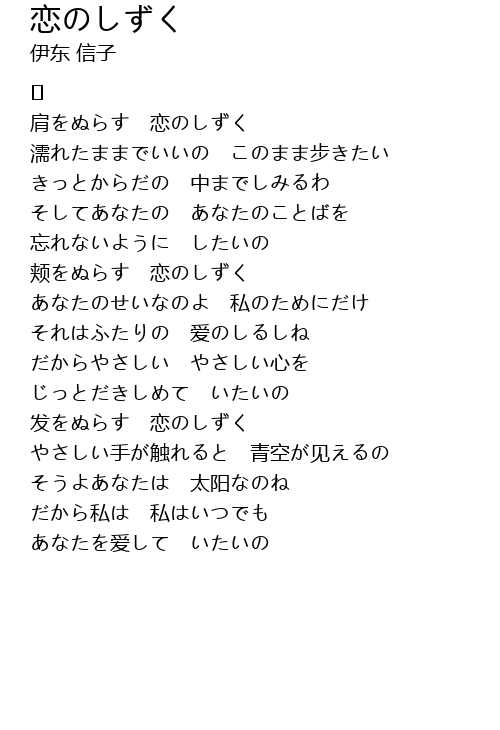 恋のしずく
伊东 信子
肩をぬらす　恋のしずく
濡れたままでいいの　このまま歩きたい
きっとからだの　中までしみるわ
そしてあなたの　あなたのことばを
忘れないように　したいの
颊をぬらす　恋のしずく
あなたのせいなのよ　私のためにだけ
それはふたりの　爱のしるしね
だからやさしい　やさしい心を
じっとだきしめて　いたいの
发をぬらす　恋のしずく
やさしい手が触れると　青空が见えるの
そうよあなたは　太阳なのね
だから私は　私はいつでも
あなたを爱して　いたいの